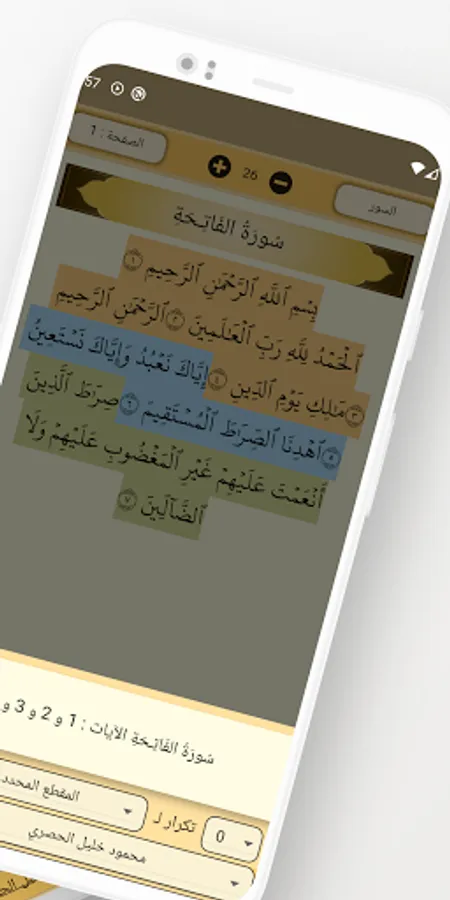 57
الصفحة : 1
26
السور
سُورَةُ الفَاتِحَةِ
بِسْمِ ٱللَّهِ ٱلرَّحْمَٰنِ ٱلرَّحِيمِ ١
ٱلْحَمْدُ لِلَّهِ رَبِّ ٱلْعَٰلَمِينَ ٢ ٱلرَّحْمَٰنِ ٱلرَّحِيمِ
٣ مَٰلِكِ يَوْمِ ٱلدِّينِ ٤ إِيَّاكَ نَعْبُدُ وَإِيَّاكَ نَسْتَعِينُ
٥ ٱهْدِنَا ٱلصِّرَٰطَ ٱلْمُسْتَقِيمَ ٦ صِرَٰطَ ٱلَّذِينَ
أَنْعَمْتَ عَلَيْهِمْ غَيْرِ ٱلْمَغْضُوبِ عَلَيْهِمْ وَلَا
ٱلضَّآلِّينَ ٧
سُورَةُ الفَاتِحَةِ الآيات : 1 و 2 و 3 و
0
تكرار لـ
المقطع المحدد
محمود خليل الحصري